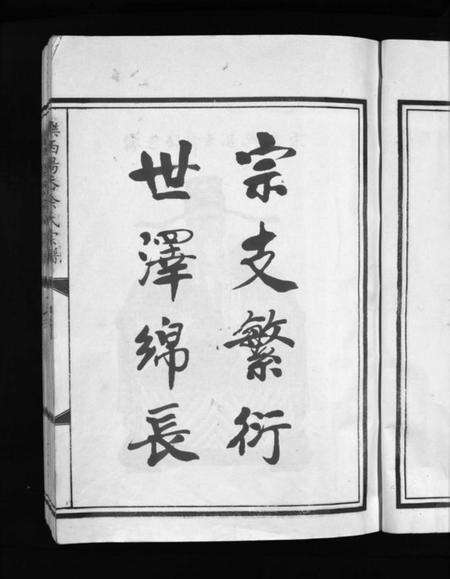 宗支繁衍
世澤綿長